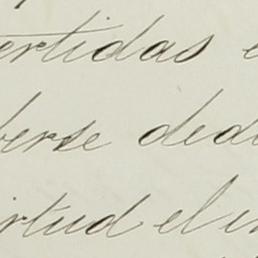 ertidas e
berse dedi
irtud el in